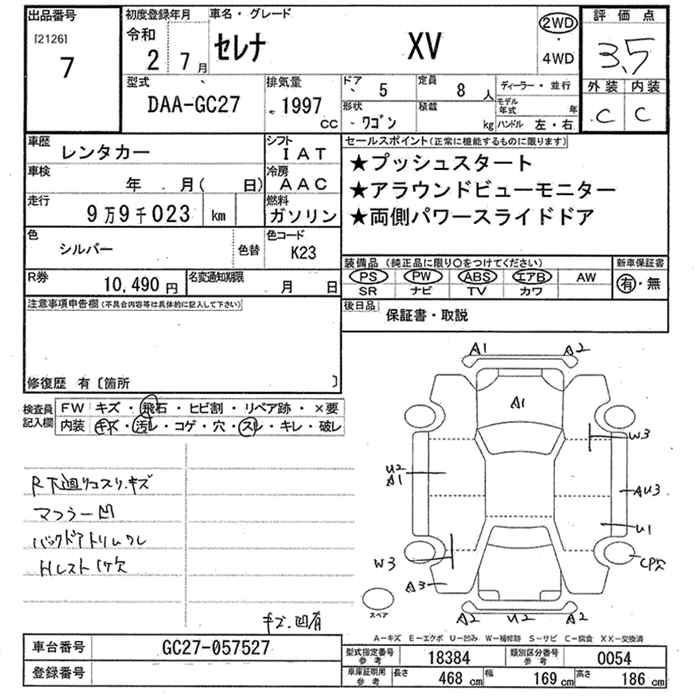 出品番号
[2126]
7
初度登録年月
令和
2年 7月
車名・グレード
セレナ XV
2WD
4WD
評価点
3.5
外装 内装
C C
型式
DAA-GC27
排気量
1997 CC
ドア 5
定員 8人
形状 ワゴン
積載 kg
ディーラー・並行
モデル年式 年
ハンドル 左・右
車歴 レンタカー
車検 年 月( 日)
走行 9万9千023 km
シフト IAT
冷房 AAC
燃料 ガソリン
セールスポイント(正常に機能するものに限ります)
★プッシュスタート
★アラウンドビューモニター
★両側パワースライドドア
色 シルバー 色替
色コード K23
R券 10,490円
名変通知期限 月 日
装備品 (純正品に限り○をつけてください)
新車保証書
PS PW ABS エアB AW
有・無
SR ナビ TV カワ
後日品 保証書・取説
注意事項申告欄(不具合内容等は具体的に記入して下さい)
修復歴 有 [箇所 ]
検査員記入欄
FW キズ・飛石・ヒビ割・リペア跡・×要
内装 キズ・汚レ・コゲ・穴・スレ・キレ・破レ
R下廻りコスリ.キズ
マフラー凹
バックドアトリムクレ
Hレストト穴
キズ.凹有
A1 A2
A1
W3
U2
A1
AU3
U1
W3
CP欠
A3
A2 U2 A2
スペア
A−キズ E−エクボ U−凹み W−補修跡 S−サビ C−腐食 XX−交換済
車台番号 GC27-057527
登録番号
型式指定番号 参考 18384
類別区分番号 参考 0054
車庫証明用 参考 長さ 468 cm 幅 169 cm 高さ 186 cm